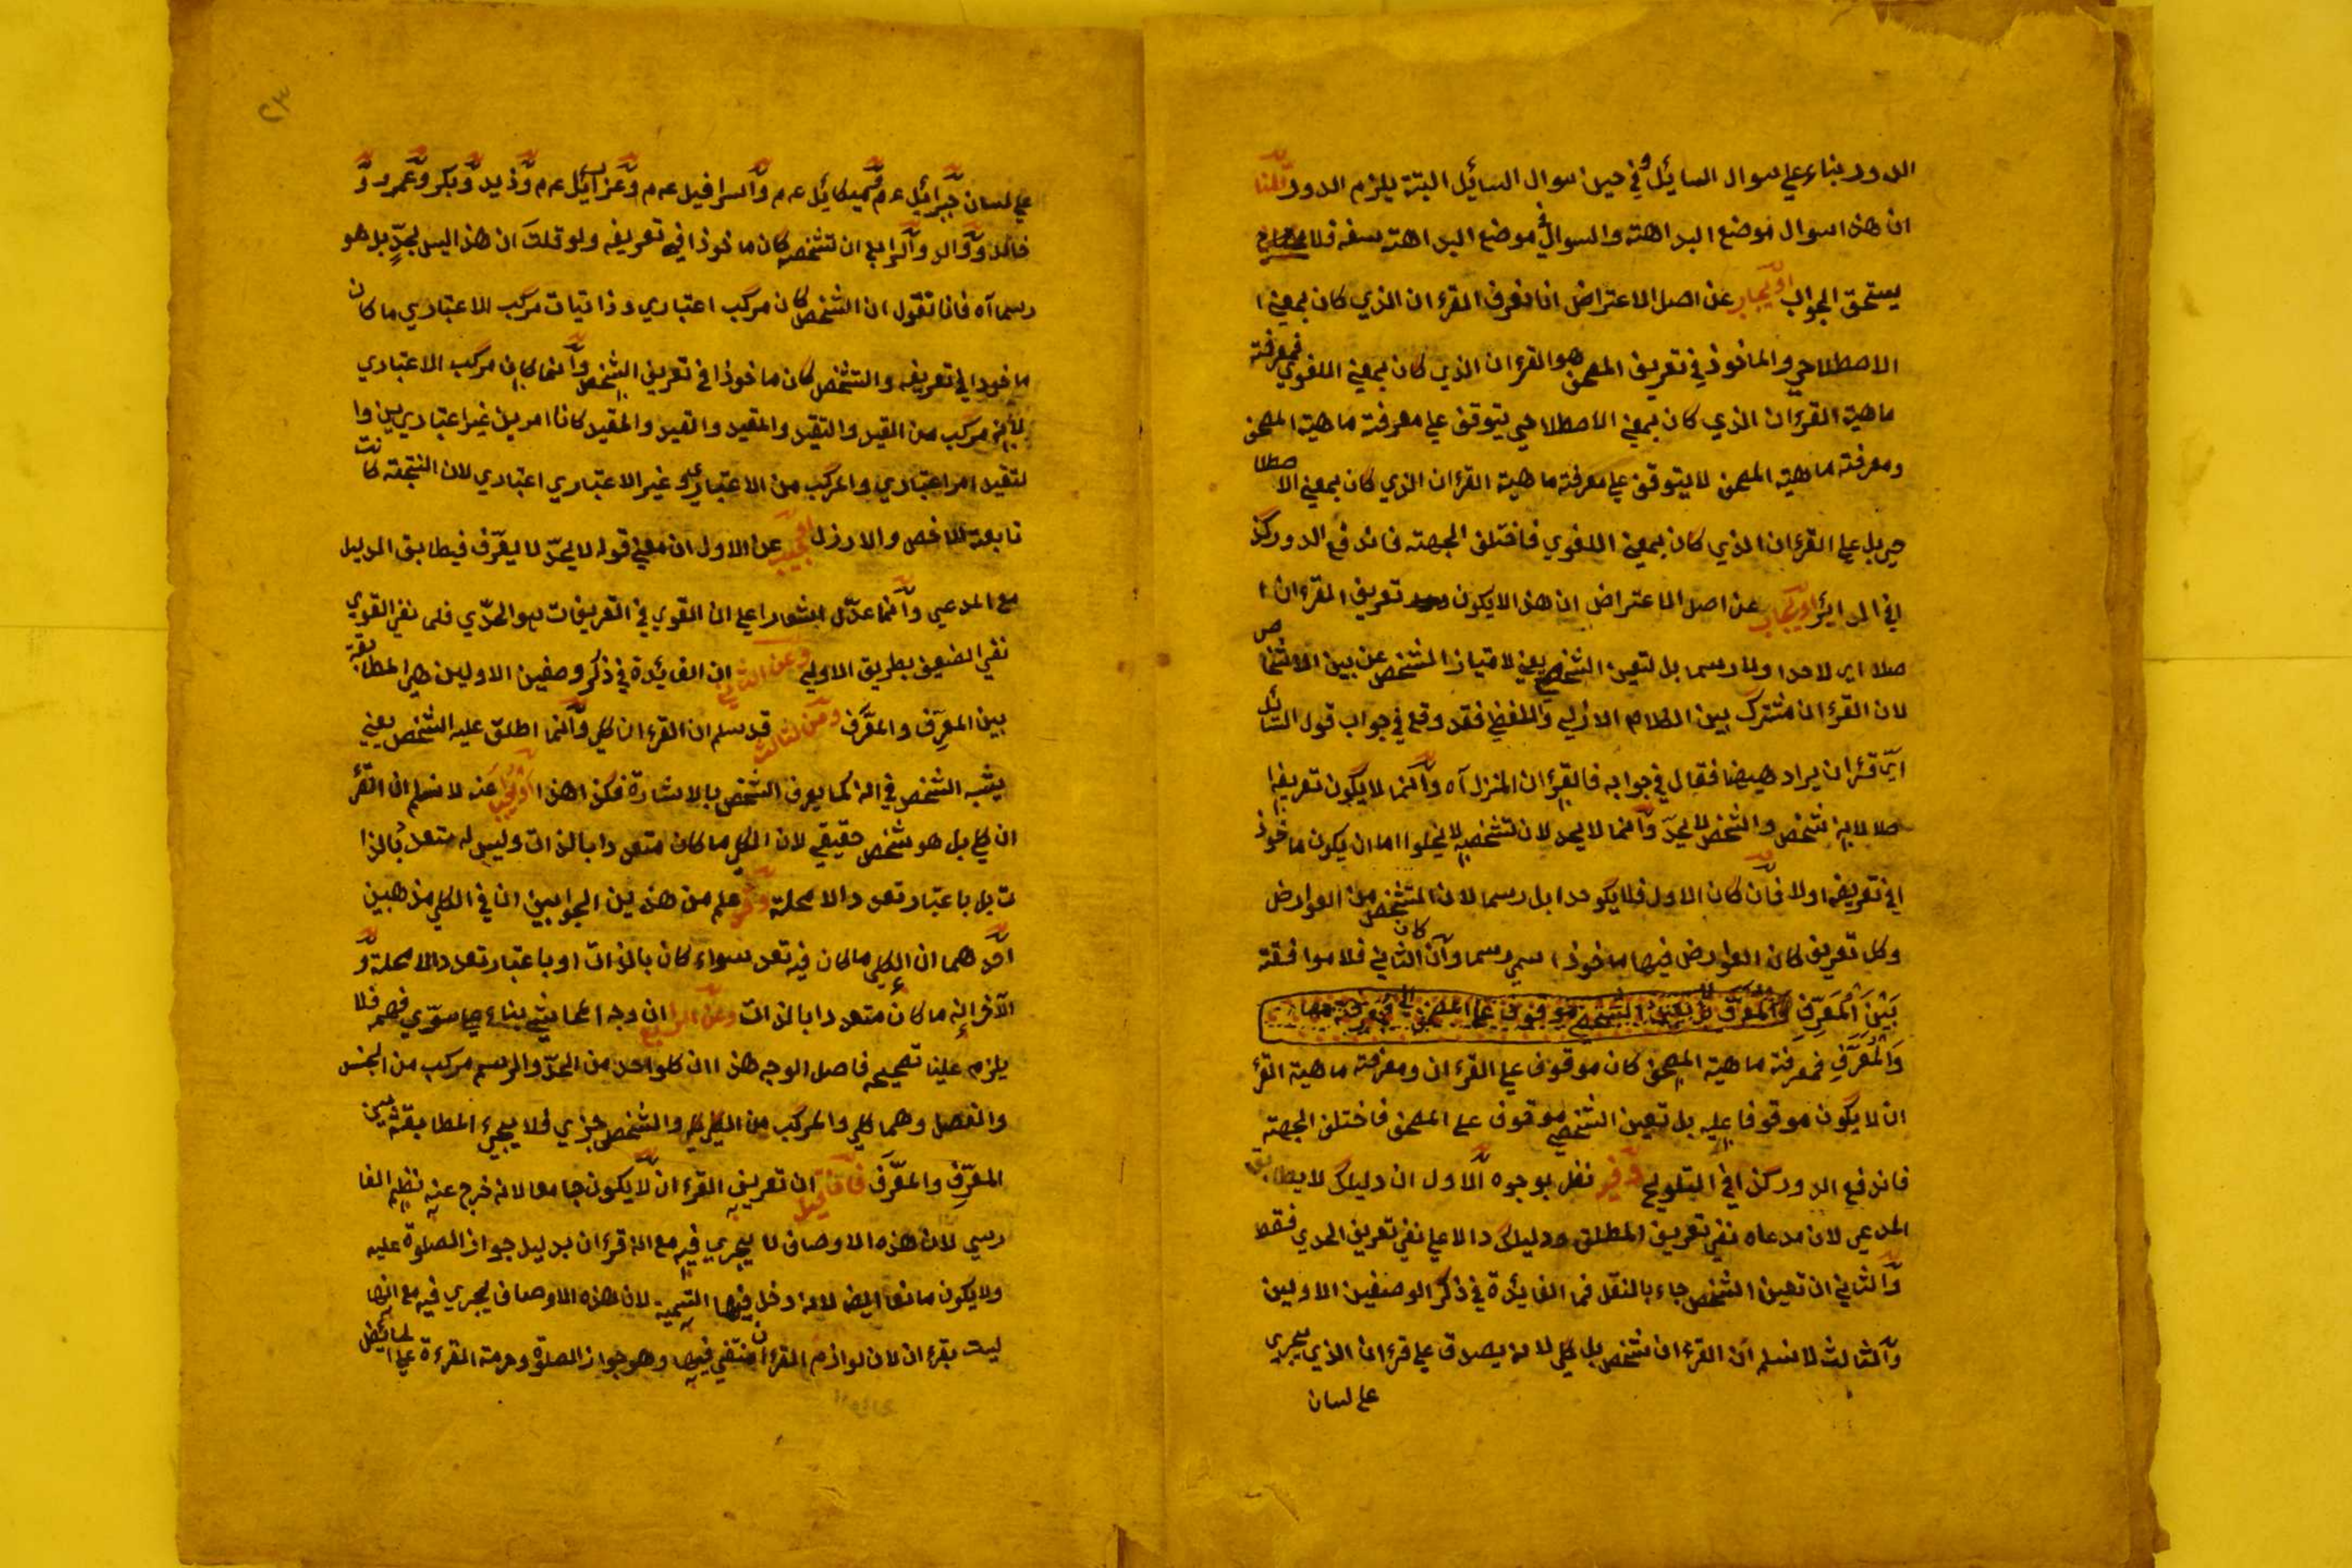 الدور بناء علي سوال السائل وفي حين سوال السائل البتة يلزم الدور قلنا
ان هذا سوال موضع البداهته والسوال في موضع البداهته سفه فلا
يستحق الجواب او يجاب عن اصل الاعتراض انا نعرف القرءان الذي كان بمعني ا
الاصطلاحي والماخوذ في تعريف المصحف هو القرءان الذي كان بمعني اللغوي فمعرفة
ماهية القرءان الذي كان بمعني الاصطلاحي يتوقف علي معرفة ماهية المصحف
ومعرفة ماهية المصحف لا يتوقف علي معرفة ماهية القرءان الذي كان بمعني الاصطلا
حي بل علي القرءان الذي كان بمعني اللغوي فاختلف الجهته فاندفع الدور كذ
افي الداير او يجاب عن اصل الاعتراض ان هذا لا يكون تعريف القرءان ا
صلا اي لا حدا ولا رسما بل لتعين الشخص يعني لامتياز المشخص عن بين الاشخاص
لان القرءان مشترك بين الكلام الازلي واللفظي فقد وقع في جواب قول السائل
اي قرءان يراد ههنا فقال في جوابه فالقرءان المنزل آه وانما لا يكون تعريفا
صلا لانه شخص والشخص لا يحد وانما لا يحد لان تشخصه لا يخلوا اما ان يكون ماخوذ
افي تعريفه اولا فان كان الاول فلا يكو حدا بل رسما لان المتشخص من العوارض
وكل تعريف كان العوارض فيها ماخوذا سمي رسما وان كان الثاني فلا موافقته
بين المعرف والمعرف لتعين الشخص موقوف علي المصحف فمعرفته
والمعرف فمعرفة ماهية المصحف كان موقوف علي القرءان ومعرفة ماهية القر
ان لا يكون موقوفا عليه بل تعين الشخص موقوف علي المصحف فاختلف الجهته
فاندفع الدور كذا في التلويح وفيه نظر بوجوه الاول ان دليلك لا يطابق
المدعي لان مدعاه نفي تعريف المطلق ودليلك دالا علي نفي تعريف الحدي فقط
والثاني ان تعين الشخص جاء بالنقل فما الفايدة في ذكر الوصفين الاولين
والثالث لا نسلم ان القرءان شخص بل كلي لانه يصدق علي قرءان الذي يجري
علي لسان
٢٣
علي لسان جبرائيل عم وميكائيل عم واسرافيل عم وعزرائيل عم وزيد وبكر وعمرو و
خالد و والرابع ان تشخصه كان ماخوذا في تعريفه ولو قلت ان هذا ليس بحد بل هو
رسما آه فانا نقول ان الشخص كان مركب اعتباري وذاتيات مركب الاعتباري ما كان
ماخوذا في تعريفه والتشخص كان ماخوذا في تعريف الشخص وانما كان مركب الاعتباري
لانه مركب من القيد والتقيد والمقيد والقيد والمقيد كانا امرين غير اعتباريين وا
لتقيد امر اعتباري والمركب من الاعتباري وغير الاعتباري اعتباري لان النتجته كانت
تابعة للاخص والارزل اجيب عن الاول ان معني قوله لا يحد لا يعرف فيطابق الدليل
مع المدعي وانما عدل اشعارا علي ان القوي في التعريفات هو الحدي فلما نفي القوي
نفي الضعيف بطريق الاولي وعن الثاني ان الفايدة في ذكر وصفين الاولين هي المطابقة
بين المعرف والمعرف وعن الثالث قد سلم ان القرءان كلي وانما اطلق عليه الشخص يعني
يشبه الشخص في انه كما يعرف الشخص بالاشارة فكذا هذا او نجيب عنه لا نسلم ان القر
ان كلي بل هو شخص حقيقي لان الكلي ما كان متعددا بالذات وليس له متعدد بالذا
ت بل باعتبار تعدد الامحلة علم من هذين الجوابين ان في الكلي مذهبين
احدهما ان الكلي ما كان فيه تعدد سواء كان بالذات او باعتبار تعدد الامحلة و
الآخر انه ما كان متعددا بالذات وعن الرابع ان وجه بناء فهم فلا
يلزم علينا تصحيحه فاصل الوجه هذا ان كلواحد من الحد والرسم مركب من الجنس
والفصل وهما كلي والمركب من الكلي كلي والشخص جزي فلا يجيء المطابقة بين
المعرف والمعرف فان قيل ان تعريف القرءان لا يكون جامعا لانه خرج عنه نظم الفا
رسي لان هذه الاوصاف لا يجري فيه مع انه قرءان بدليل جواز الصلوة عليه
ولا يكون مانعا ايضا لانه دخل فيها التسمية لان هذه الاوصاف يجري فيه مع انها
ليت بقرءان لان لوازم القرءان منتفي فيها وهو جواز الصلوة وحرمة القرءة علي الحائض